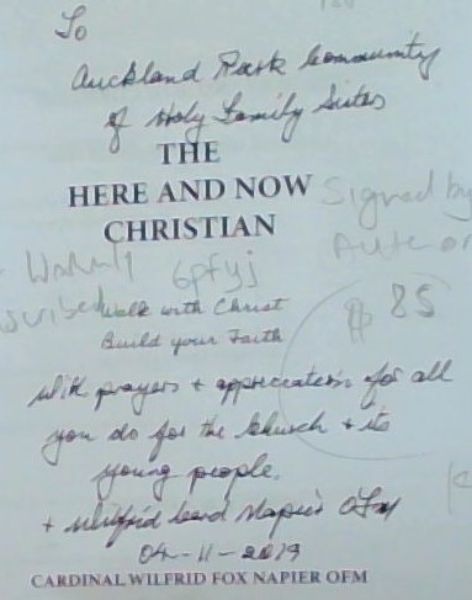 To
Auckland Park Community
of Holy Family Sisters
THE
HERE AND NOW
CHRISTIAN
Signed by
Author
Warmly
6pfyj
Walk with Christ
$ 85
Build your Faith
with prayers + appreciation for all
you do for the Church + its
young people.
+ Wilfrid Card Napier OFM
04-11-2019
CARDINAL WILFRID FOX NAPIER OFM